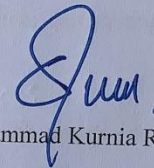 ammad Kurnia R